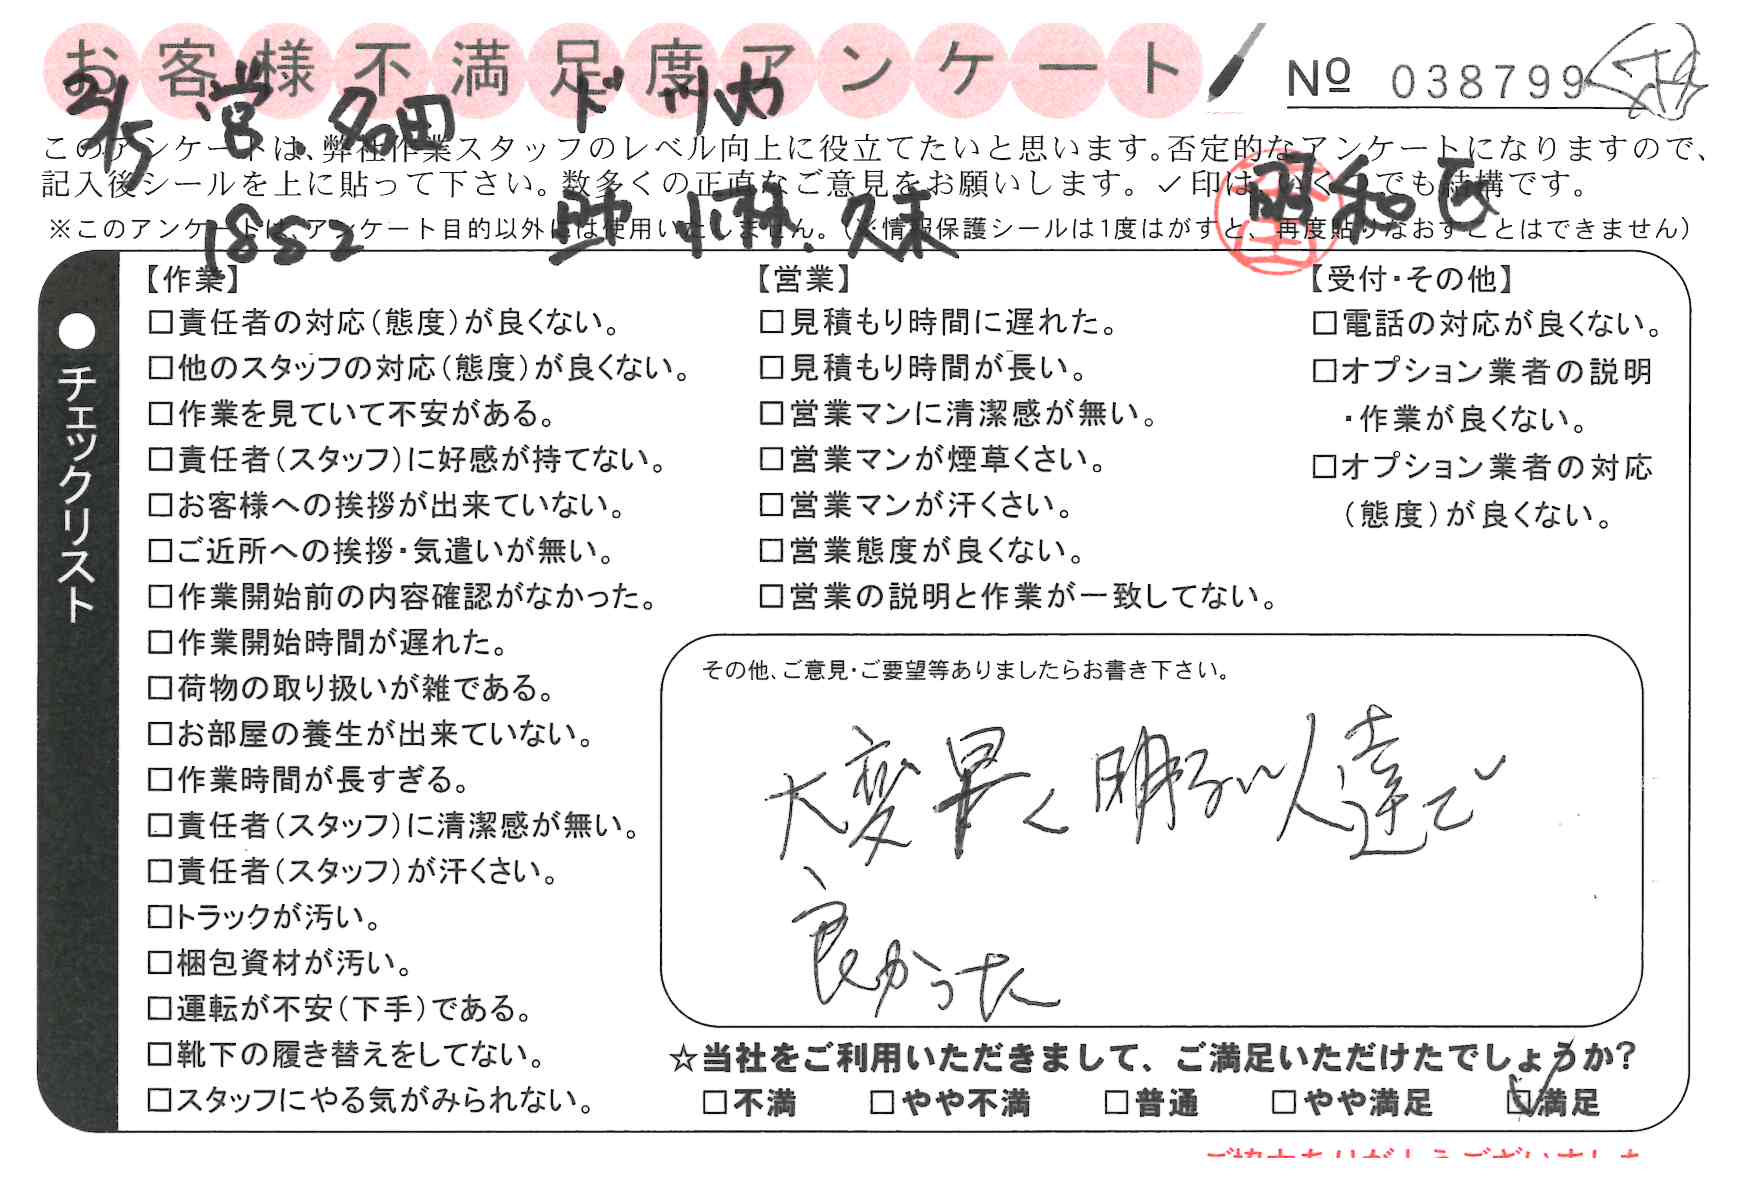 お客様不満足度アンケート
№ 038799
2/5 営 多田 ド 小池
このアンケートは、弊社作業スタッフのレベル向上に役立てたいと思います。否定的なアンケートになりますので、
記入後シールを上に貼って下さい。数多くの正直なご意見をお願いします。✓印はいくつでも結構です。
1882 助 小林、久末 昭和区
※このアンケートは、アンケート目的以外には使用いたしません。(※情報保護シールは1度はがすと、再度貼りなおすことはできません)
●チェックリスト
【作業】
□責任者の対応(態度)が良くない。
□他のスタッフの対応(態度)が良くない。
□作業を見ていて不安がある。
□責任者(スタッフ)に好感が持てない。
□お客様への挨拶が出来ていない。
□ご近所への挨拶・気遣いが無い。
□作業開始前の内容確認がなかった。
□作業開始時間が遅れた。
□荷物の取り扱いが雑である。
□お部屋の養生が出来ていない。
□作業時間が長すぎる。
□責任者(スタッフ)に清潔感が無い。
□責任者(スタッフ)が汗くさい。
□トラックが汚い。
□梱包資材が汚い。
□運転が不安(下手)である。
□靴下の履き替えをしてない。
□スタッフにやる気がみられない。
【営業】
□見積もり時間に遅れた。
□見積もり時間が長い。
□営業マンに清潔感が無い。
□営業マンが煙草くさい。
□営業マンが汗くさい。
□営業態度が良くない。
□営業の説明と作業が一致してない。
【受付・その他】
□電話の対応が良くない。
□オプション業者の説明
・作業が良くない。
□オプション業者の対応
(態度)が良くない。
その他、ご意見・ご要望等ありましたらお書き下さい。
大変早く明るい人達で
良かった
☆当社をご利用いただきまして、ご満足いただけたでしょうか?
□不満 □やや不満 □普通 □やや満足 ☑満足
ご協力ありがとうございました